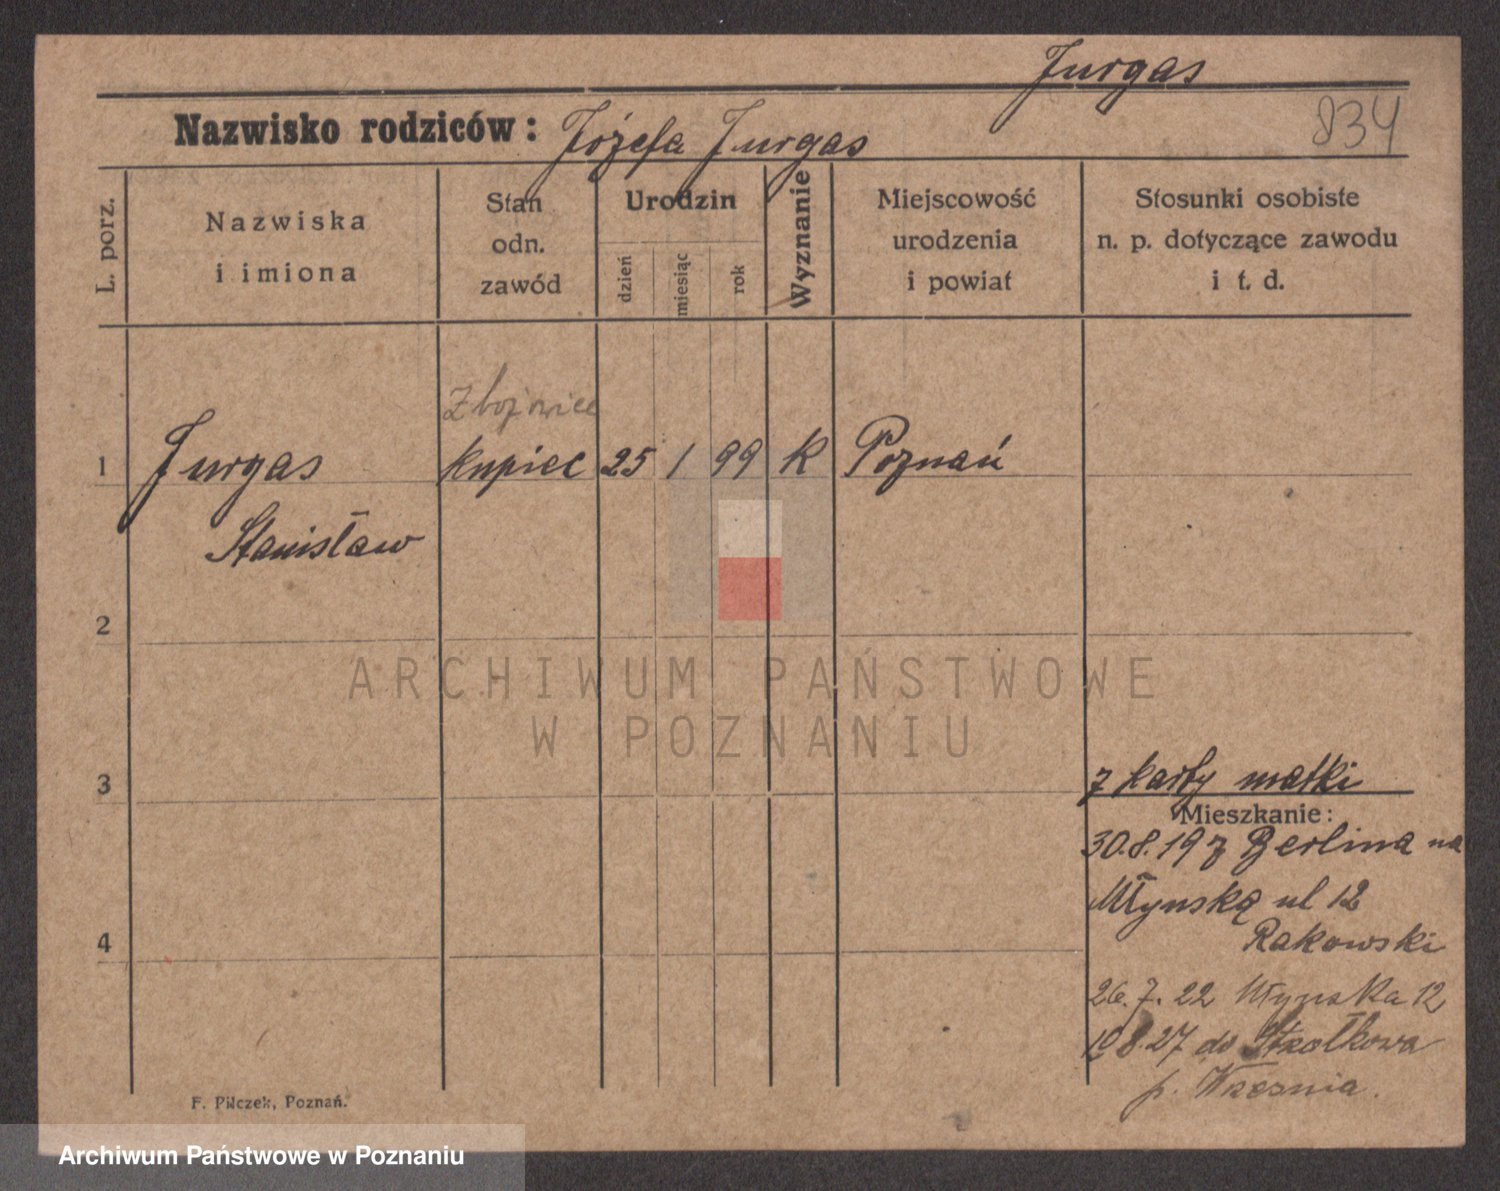 Jurgas
834
Nazwisko rodziców: Józefa Jurgas
L. porz.
Nazwiska
i imiona
Stan
odn.
zawód
Urodzin
dzień
miesiąc
rok
Wyznanie
Miejscowość
urodzenia
i powiat
Stosunki osobiste
n. p. dotyczące zawodu
i t. d.
1
Jurgas
kupiec
25
1
99
k
Poznań
Stanisław
2
ARCHIWUM PAŃSTWOWE
W POZNANIU
3
z karty matki
Mieszkanie:
30.8.19 z Berlina na
Młyńską ul 12
Rakowski
4
26.7.22 Młyńska 12
10.8.27 do Strzałkowa
p. Września.
F. Pilczek, Poznań.
Archiwum Państwowe w Poznaniu